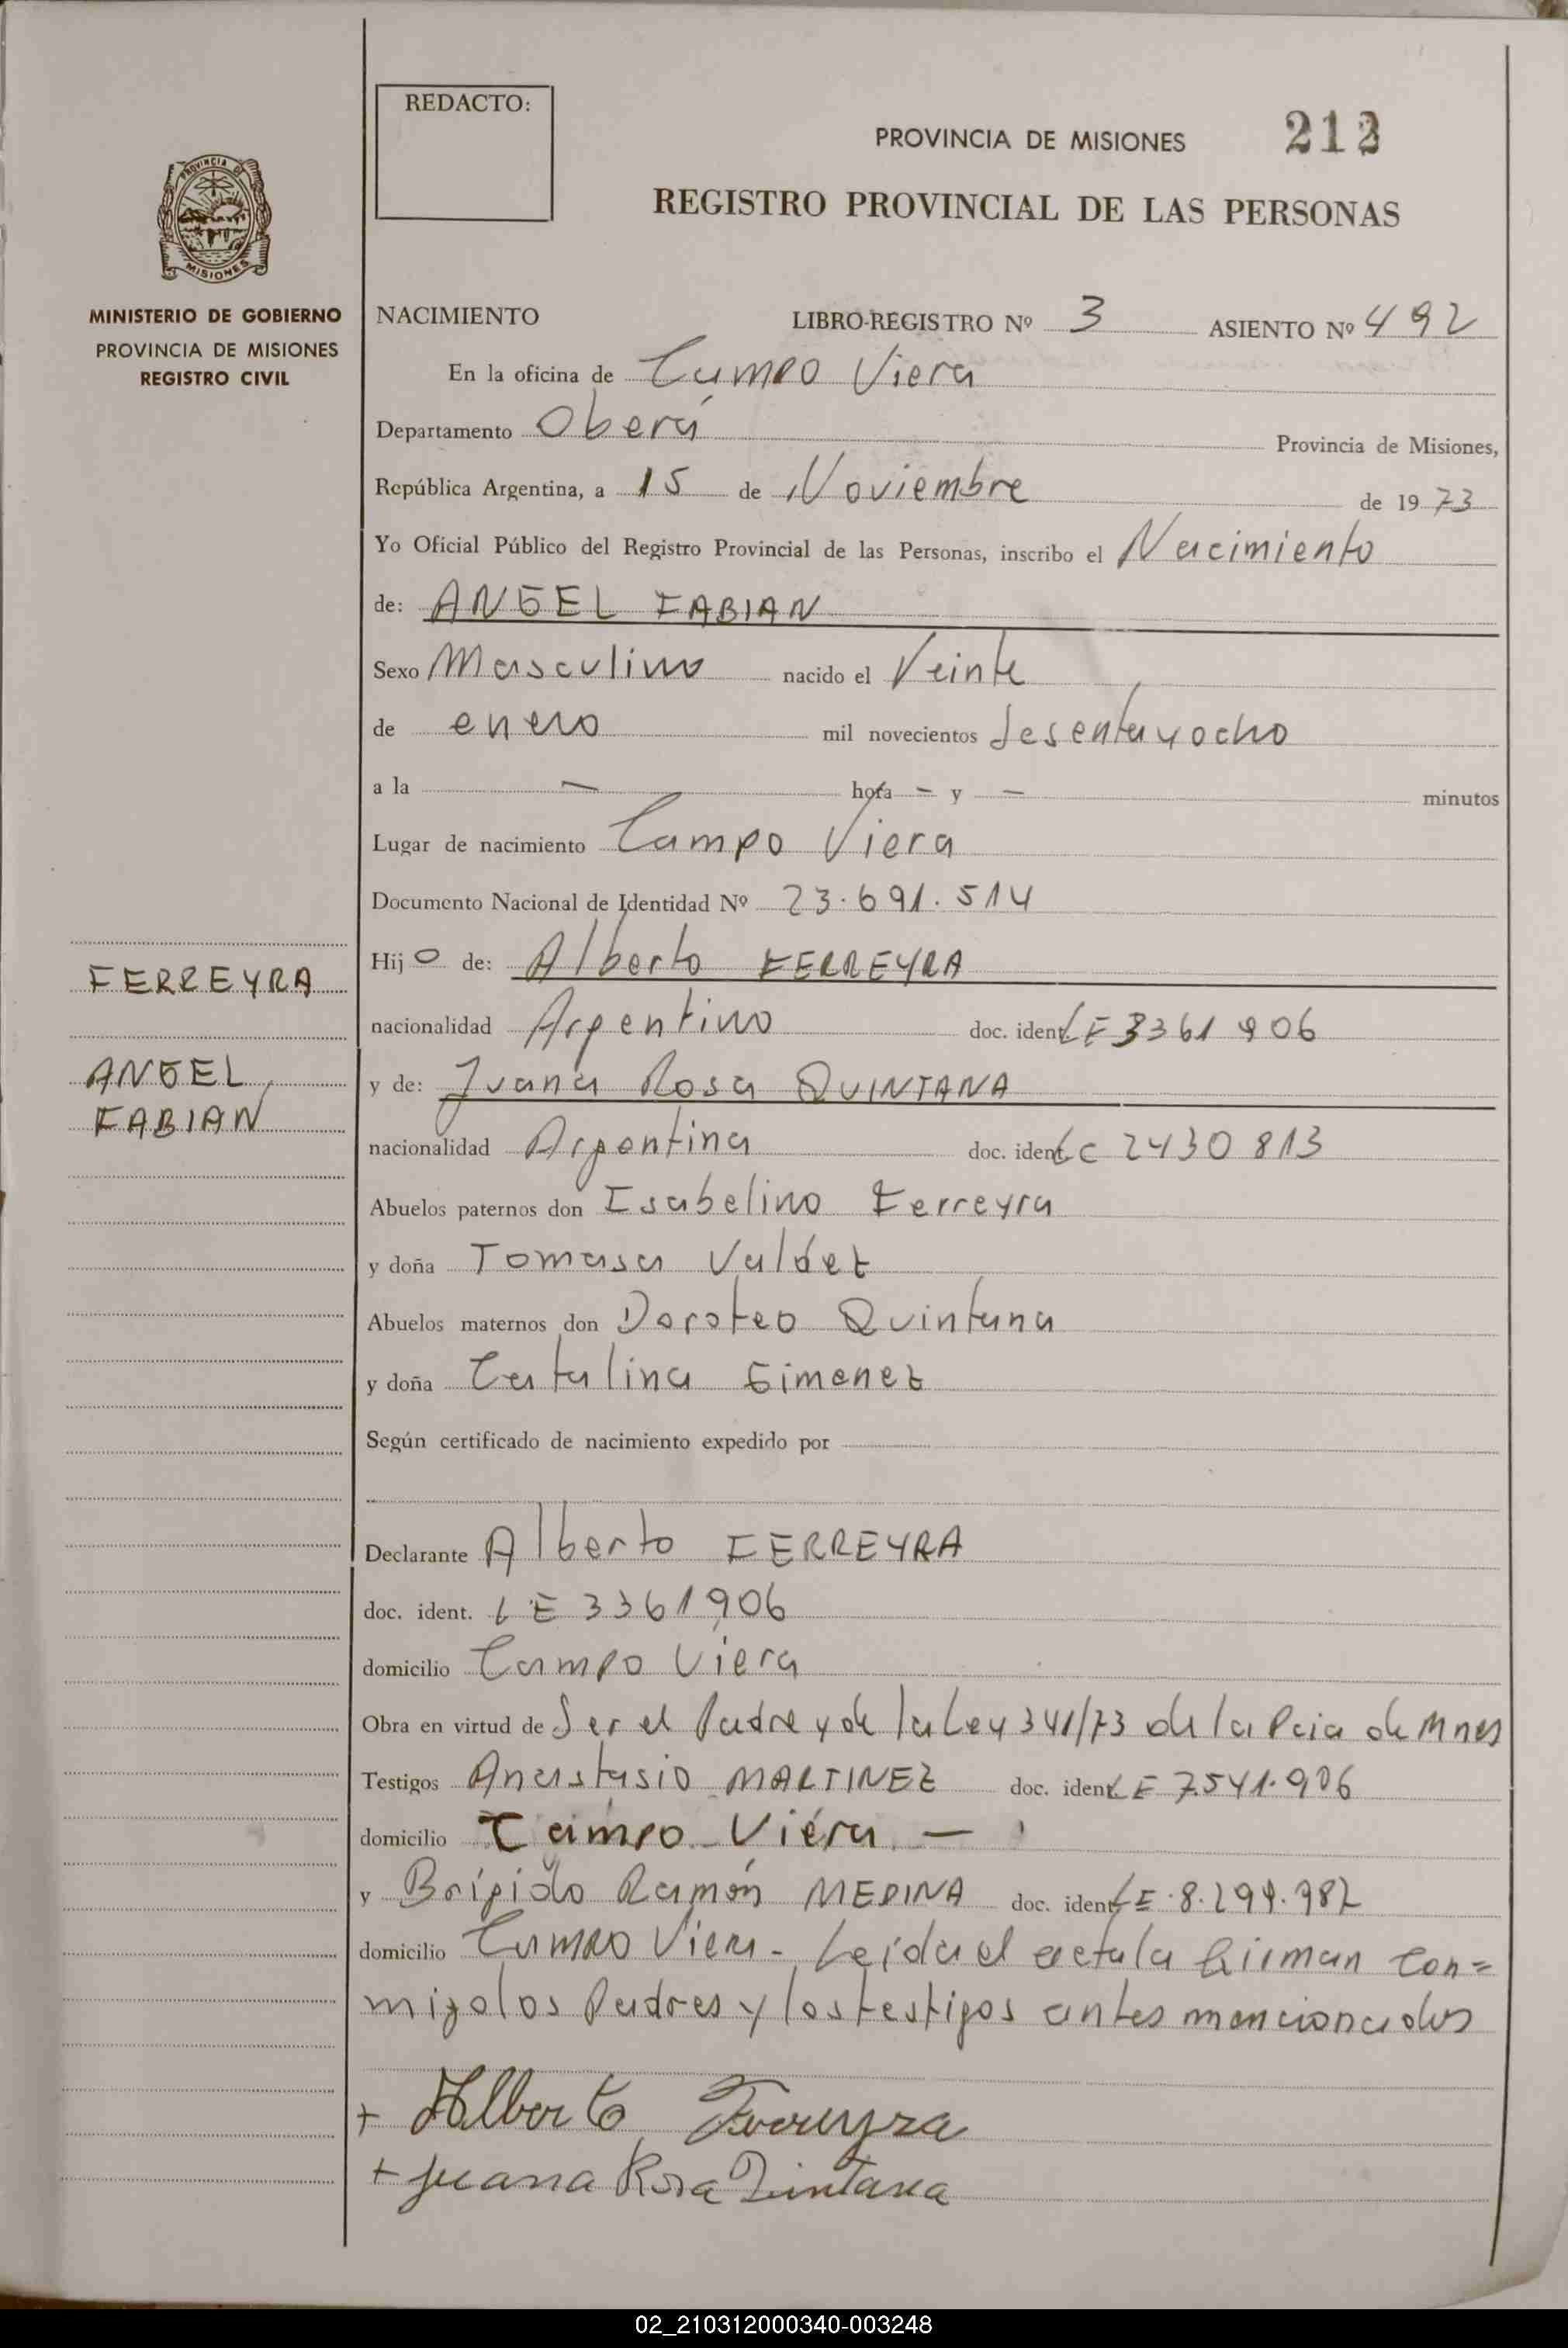 REDACTO:
PROVINCIA DE MISIONES
212
REGISTRO PROVINCIAL DE LAS PERSONAS
PROVINCIA DE
MISIONES
MINISTERIO DE GOBIERNO
PROVINCIA DE MISIONES
REGISTRO CIVIL
NACIMIENTO LIBRO-REGISTRO Nº 3 ASIENTO Nº 492
En la oficina de Campo Viera
Departamento Oberá Provincia de Misiones,
República Argentina, a 15 de Noviembre de 1973
Yo Oficial Público del Registro Provincial de las Personas, inscribo el Nacimiento
de: ANGEL FABIAN
Sexo Masculino nacido el Veinte
de enero mil novecientos sesentayocho
a la — hora — y — minutos
Lugar de nacimiento Campo Viera
Documento Nacional de Identidad Nº 23.691.514
FERREYRA
Hijo de: Alberto FERREYRA
nacionalidad Argentino doc. ident. LE 3361906
ANGEL
FABIAN
y de: Juana Rosa QUINTANA
nacionalidad Argentina doc. ident. LC 2430813
Abuelos paternos don Isabelino Ferreyra
y doña Tomasa Valdez
Abuelos maternos don Doroteo Quintana
y doña Catalina Gimenez
Según certificado de nacimiento expedido por
Declarante Alberto FERREYRA
doc. ident. LE 3361906
domicilio Campo Viera
Obra en virtud de Ser el Padre y de la Ley 341/73 de la Pcia de Mnes
Testigos Anastasio MARTINEZ doc. ident. LE 7.541.906
domicilio Campo Viera —
y Brígido Ramón MEDINA doc. ident. LE 8.299.982
domicilio Campo Viera - Leída el acta la firman con=
migo los Padres y los testigos antes mencionados
+ Alberto Ferreyra
+ Juana Rosa Quintana
02_210312000340-003248